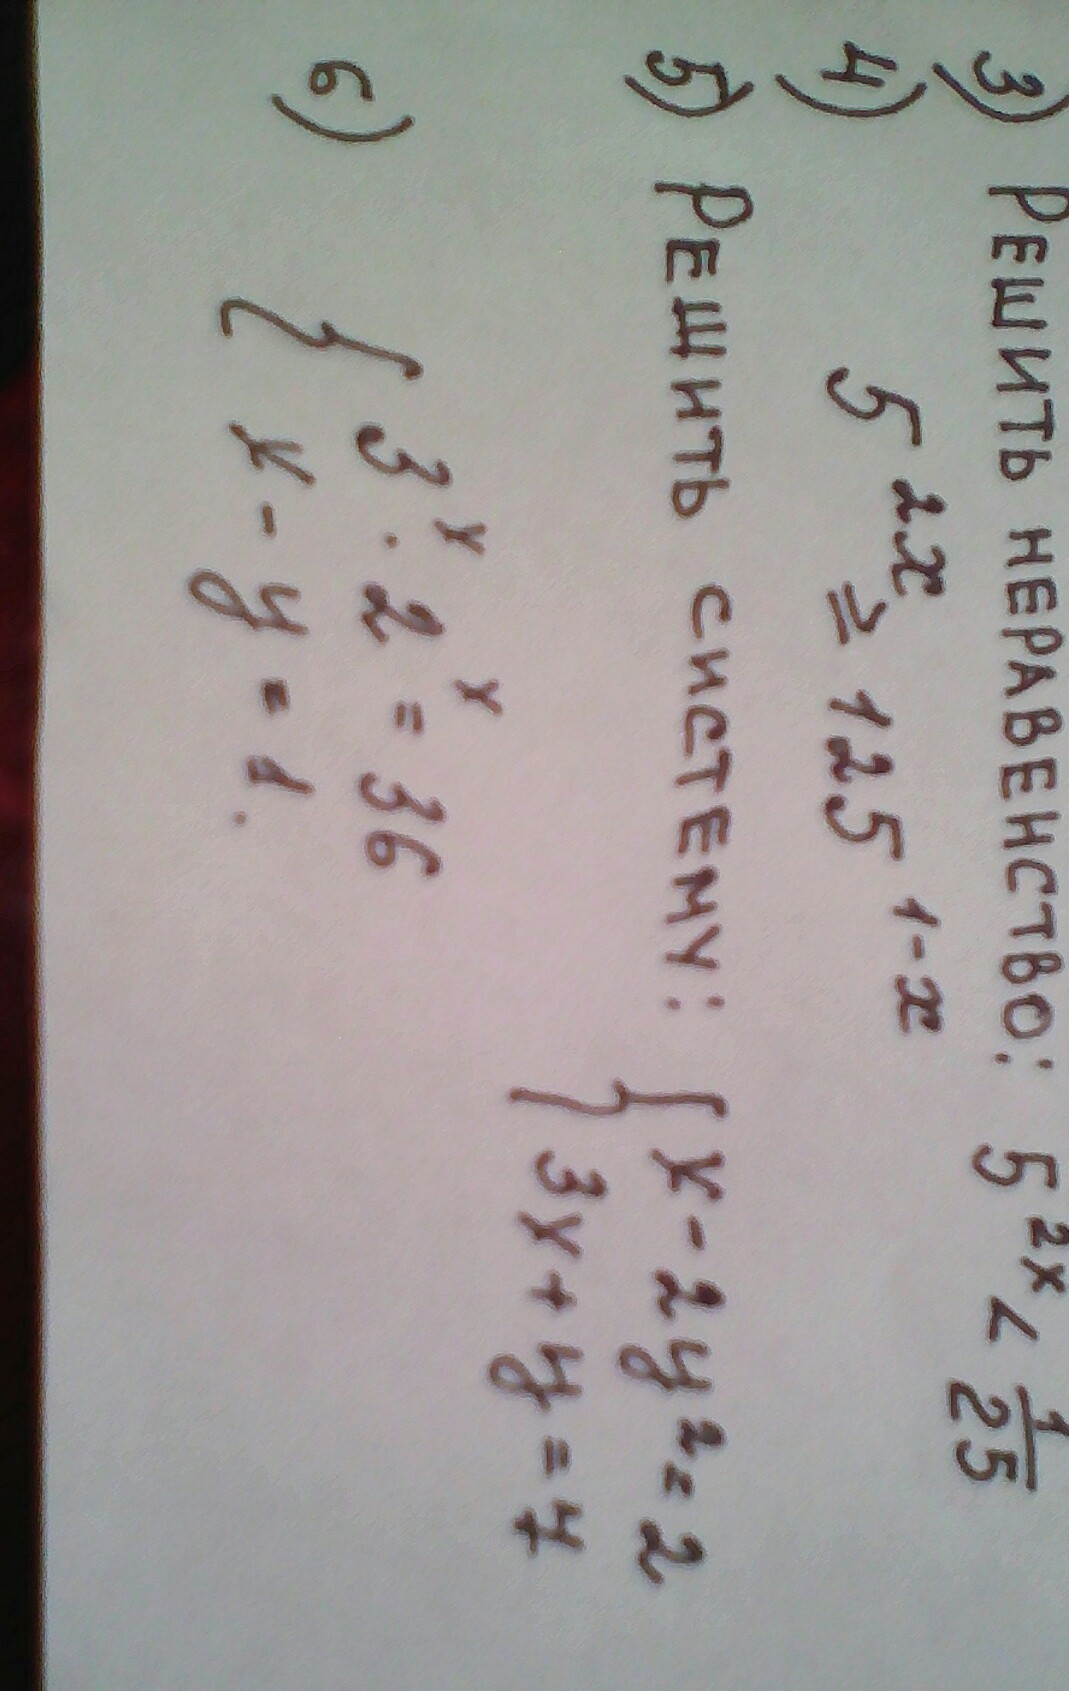 3) РЕШИТЬ НЕРАВЕНСТВО: 5^{2x} < \frac{1}{25}
4) 5^{2x} ⩾ 125^{1-x}
5) РЕШИТЬ СИСТЕМУ: { x - 2y² = 2
3x + y = 7
6) { 3^x · 2^x = 36
x - y = 1.